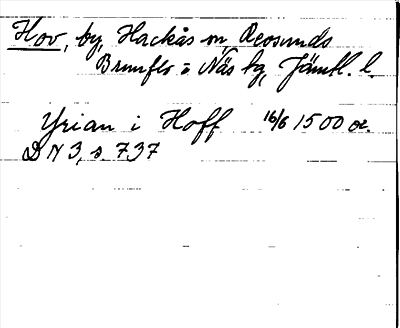 Hov, by, Hackås sn, Revsunds
Brunflo o Näs tg, Jämtl. l.
Yrian i Hoff 16/6 1500 or.
DN 3, s 737